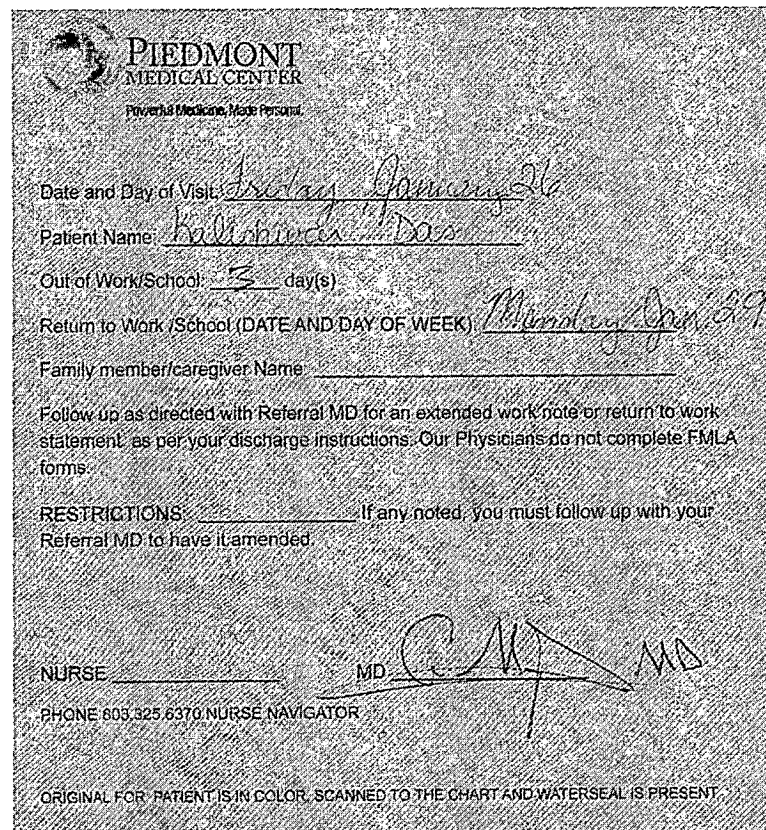 PIEDMONT
MEDICAL CENTER
Powerful Medicine, Made Personal.
Date and Day of Visit: Friday January 26
Patient Name: Kalishwar Das
Out of Work/School: 3 day(s)
Return to Work /School (DATE AND DAY OF WEEK): Monday, Jan. 29
Family member/caregiver Name:
Follow up as directed with Referral MD for an extended work note or return to work
statement as per your discharge instructions. Our Physicians do not complete FMLA
forms.
RESTRICTIONS: If any noted, you must follow up with your
Referral MD to have it amended.
NURSE MD MD
PHONE 803.325.6370 NURSE NAVIGATOR
ORIGINAL FOR PATIENT IS IN COLOR, SCANNED TO THE CHART AND WATERSEAL IS PRESENT.